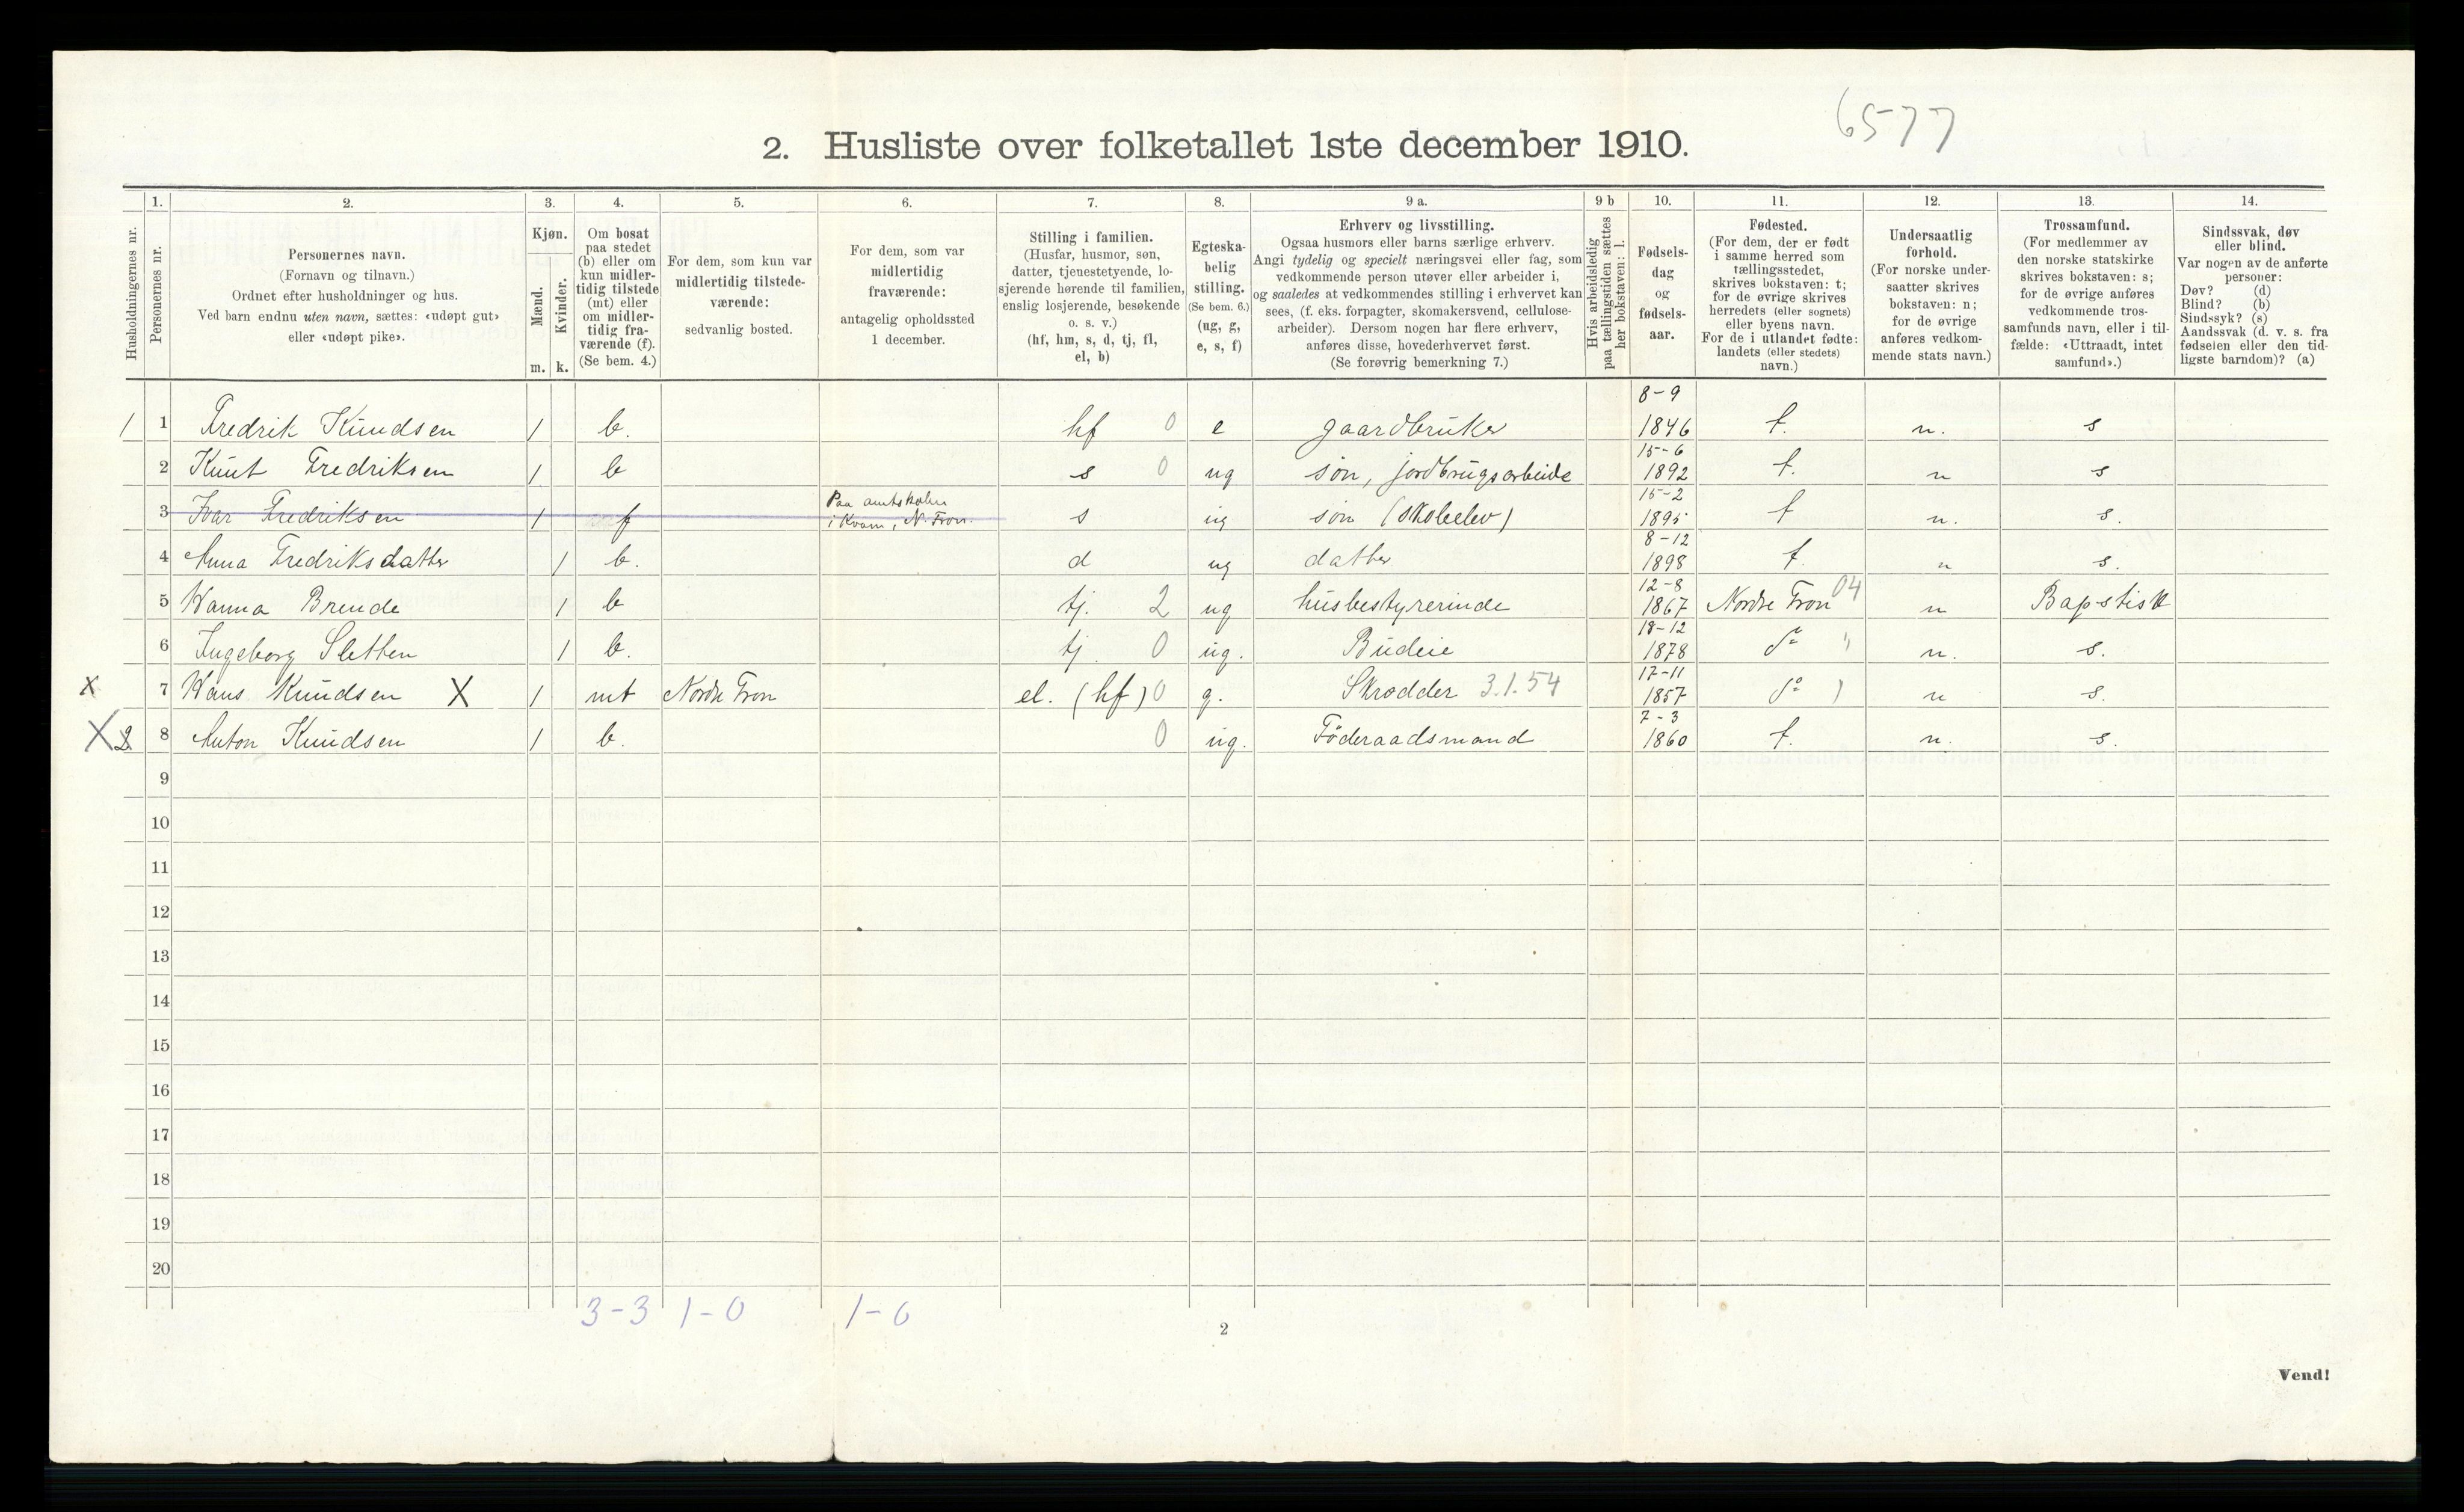 6577
2. Husliste over folketallet 1ste december 1910.
Husholdningernes nr.
1.
Personernes nr.
2.
Personernes navn.
(Fornavn og tilnavn.)
Ordnet efter husholdninger og hus.
Ved barn endnu uten navn, sættes: «udøpt gut»
eller «udøpt pike».
3.
Kjøn.
Mænd.
Kvinder.
m. k.
4.
Om bosat
paa stedet
(b) eller om
kun midler-
tidig tilstede
(mt) eller
om midler-
tidig fra-
værende (f).
(Se bem. 4.)
5.
For dem, som kun var
midlertidig tilstede-
værende:
sedvanlig bosted.
6.
For dem, som var
midlertidig
fraværende:
antagelig opholdssted
1 december.
7.
Stilling i familien.
(Husfar, husmor, søn,
datter, tjenestetyende, lo-
sjerende hørende til familien,
enslig losjerende, besøkende
o. s. v.)
(hf, hm, s, d, tj, fl,
el, b)
8.
Egteska-
belig
stilling.
(Se bem. 6.)
(ug, g,
e, s, f)
9 a.
Erhverv og livsstilling.
Ogsaa husmors eller barns særlige erhverv.
Angi tydelig og specielt næringsvei eller fag, som
vedkommende person utøver eller arbeider i,
og saaledes at vedkommendes stilling i erhvervet kan
sees, (f. eks. forpagter, skomakersvend, cellulose-
arbeider). Dersom nogen har flere erhverv,
anføres disse, hovederhvervet først.
(Se forøvrig bemerkning 7.)
9 b
Hvis arbeidsledig
paa tællingstiden sættes
her bokstaven: l.
10.
Fødsels-
dag
og
fødsels-
aar.
11.
Fødested.
(For dem, der er født
i samme herred som
tællingsstedet,
skrives bokstaven: t;
for de øvrige skrives
herredets (eller sognets)
eller byens navn.
For de i utlandet fødte:
landets (eller stedets)
navn.)
12.
Undersaatlig
forhold.
(For norske under-
saatter skrives
bokstaven: n;
for de øvrige
anføres vedkom-
mende stats navn.)
13.
Trossamfund.
(For medlemmer av
den norske statskirke
skrives bokstaven: s;
for de øvrige anføres
vedkommende tros-
samfunds navn, eller i til-
fælde: «Uttraadt, intet
samfund».)
14.
Sindssvak, døv
eller blind.
Var nogen av de anførte
personer:
Døv? (d)
Blind? (b)
Sindssyk? (s)
Aandssvak (d. v. s. fra
fødselen eller den tid-
ligste barndom)? (a)
1 1 Fredrik Knudsen 1 b. hf 0 e gaardbruker 8-9 1846 t. n. s
2 Knut Fredriksen 1 b s 0 ug søn, jordbrugsarbeide 15-6 1892 t. n s
3 Ivar Fredriksen 1 f Paa amtskolen i Kvam, N. Fron. s ug søn (skoleelev) 15-2 1895 t n. s.
4 Anna Fredriksdatter 1 b. d ug datter 8-12 1898 t. n s.
5 Hanna Brende 1 b tj. 2 ug husbestyrerinde 12-8 1867 Nordre Fron 04 n Baptist
6 Ingeborg Sletten 1 b. tj. 0 ug. Budeie 18-12 1878 do " n. s.
X 7 Hans Knudsen X 1 mt Nordre Fron el. (hf) 0 g. Skrædder 3.1.54 17-11 1857 do ) n s.
X 2 8 Anton Knudsen 1 b. 0 ug. Föderaadsmand 7-3 1860 t. n. s.
9
10
11
12
13
14
15
16
17
18
19
20
3-3 1-0 1-0
2
Vend!